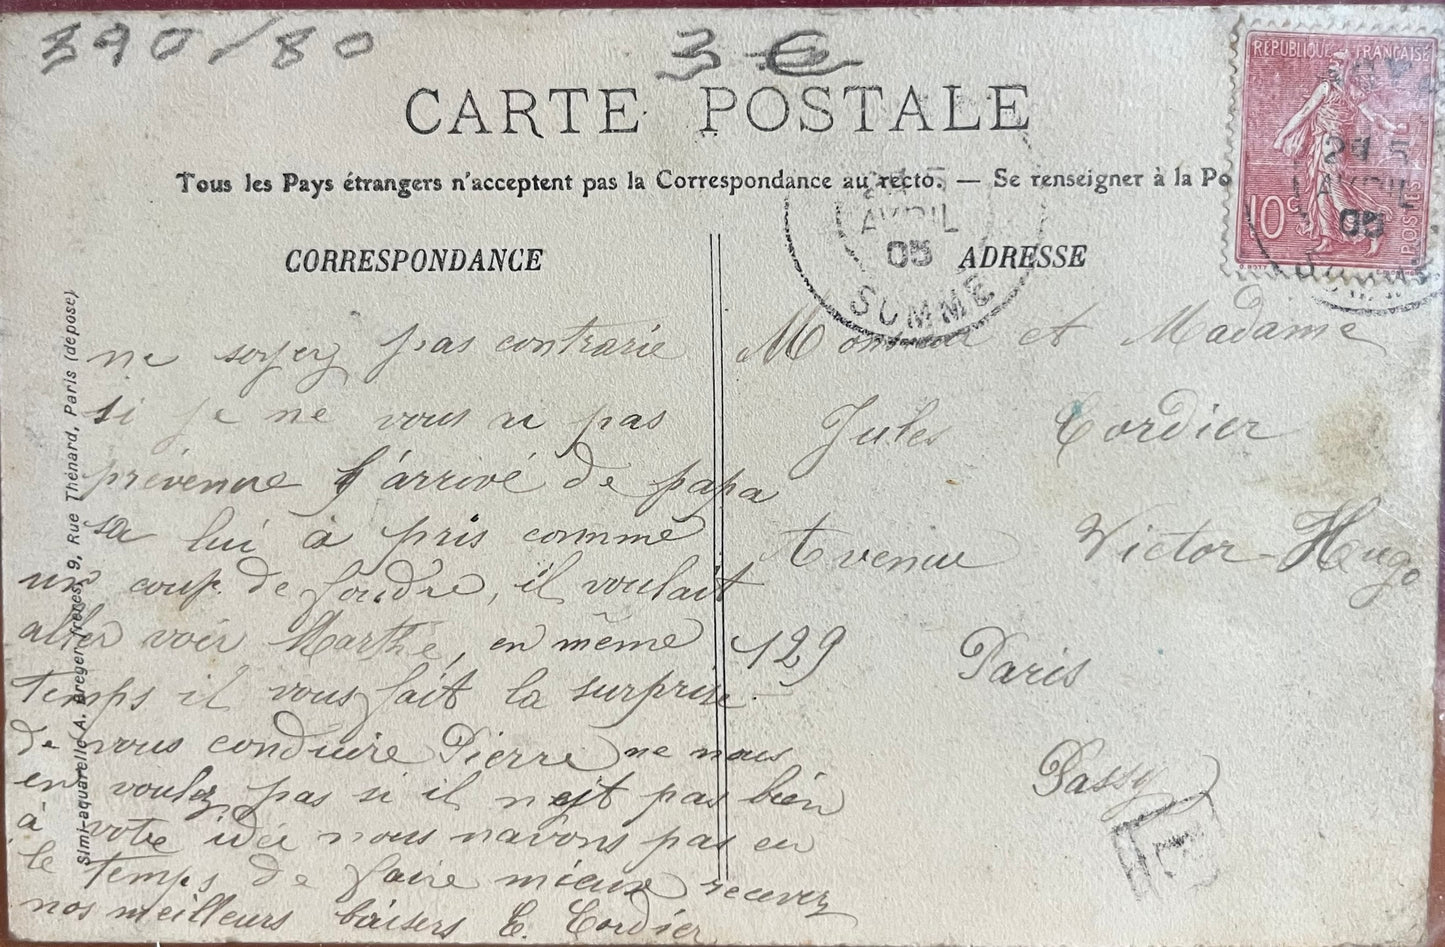 390/80
3 €
CARTE POSTALE
Tous les Pays étrangers n'acceptent pas la Correspondance au recto. — Se renseigner à la Po
RÉPUBLIQUE FRANÇAISE
10c
POSTES
AVRIL
05
AVRIL
05
SOMME
CORRESPONDANCE
ADRESSE
Simi-aquarelle A. Breger frères, 9, Rue Thénard, Paris (déposé)
ne soyez pas contrarié
si je ne vous ai pas
prévenue l'arrivé de papa
sa lui à pris comme
un coup de foudre, il voulait
aller voir Marthe, en même
temps il vous fait la surprise
de vous conduire Pierre ne nous
en voulez pas si il n'est pas bien
à votre idée nous navons pas eu
le temps de faire mieux recevez
nos meilleurs baisers E. Cordier
Monsieur et Madame
Jules Cordier
Avenue Victor-Hugo
129 Paris
Passy